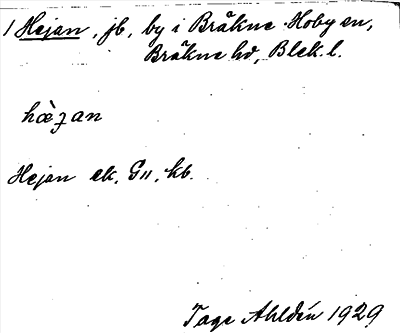 1 Hejan, jb, by i Bräkne-Hoby sn,
Bräkne hd, Blek. l.
hæ̀ʒan
Hejan ek. G11, kb.
Tage Ahldén 1929